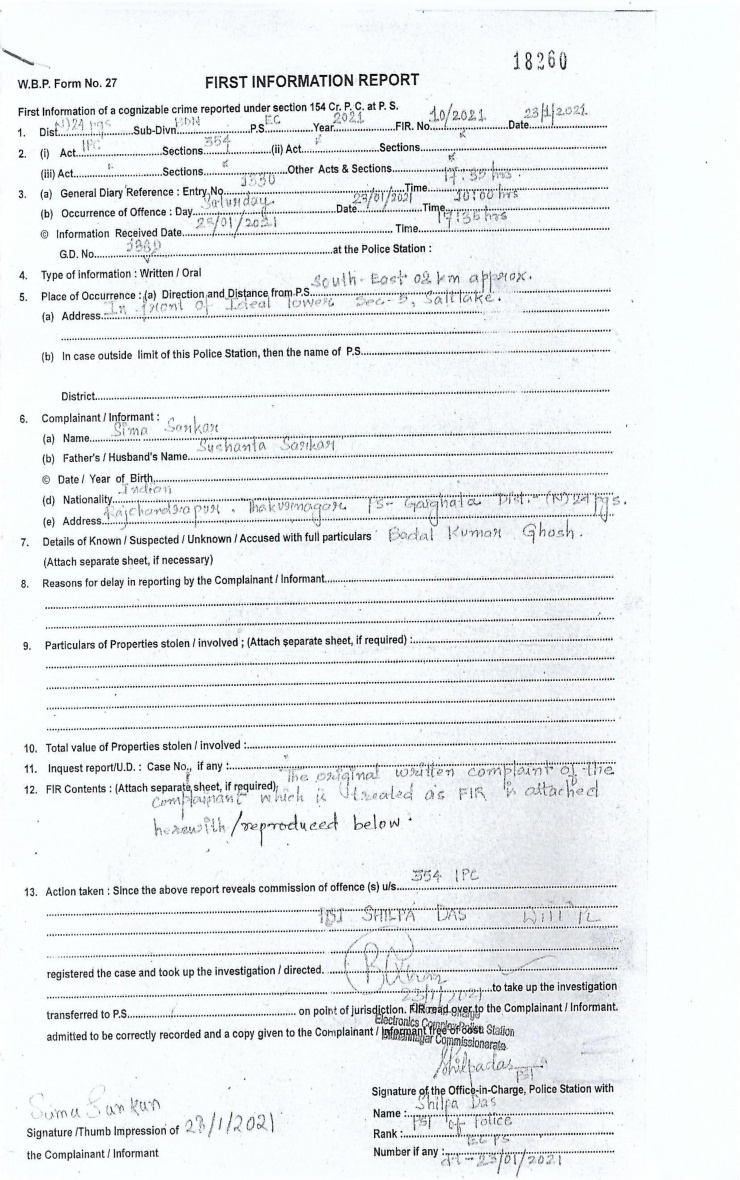 18260
W.B.P. Form No. 27
FIRST INFORMATION REPORT
First Information of a cognizable crime reported under section 154 Cr. P. C. at P. S.
1. Dist. (N) 24 pgs Sub-Divn. BDN P.S. EC Year 2021 FIR. No. 10/2021 Date 23/1/2021
2. (i) Act IPC Sections 354 (ii) Act Sections
(iii) Act Sections Other Acts & Sections
3. (a) General Diary Reference : Entry No. Time 17:35 hrs
(b) Occurrence of Offence : Day Saturday Date 23/01/2021 Time
© Information Received Date 23/01/2021 Time 17:35 hrs
G.D. No. at the Police Station :
4. Type of information : Written / Oral
5. Place of Occurrence : (a) Direction and Distance from P.S. South-East 02 km approx.
(a) Address In front of Ideal towers Sec-5, Saltlake.
(b) In case outside limit of this Police Station, then the name of P.S.
District
6. Complainant / Informant :
(a) Name Sima Sarkar
(b) Father's / Husband's Name Sushanta Sarkar
© Date / Year of Birth
(d) Nationality Indian
(e) Address Rajchandrapur, Thakurnagar PS- Gaighata Dist.- (N) 24 pgs.
7. Details of Known / Suspected / Unknown / Accused with full particulars Badal Kumar Ghosh.
(Attach separate sheet, if necessary)
8. Reasons for delay in reporting by the Complainant / Informant
9. Particulars of Properties stolen / involved ; (Attach separate sheet, if required) :
10. Total value of Properties stolen / involved :
11. Inquest report/U.D. : Case No., if any :
12. FIR Contents : (Attach separate sheet, if required) The original written complaint of the
complainant which is treated as FIR is attached
herewith/reproduced below.
13. Action taken : Since the above report reveals commission of offence (s) u/s. 354 IPC
PSI SHILPA DAS Will
registered the case and took up the investigation / directed.
23/1/2021 to take up the investigation
transferred to P.S. on point of jurisdiction. FIR read over to the Complainant / Informant.
admitted to be correctly recorded and a copy given to the Complainant / Informant free of cost
Electronics Complex Police Station
Bidhannagar Commissionerate
Shilpa Das
PSI
Signature of the Office-in-Charge, Police Station with
Name : Shilpa Das
Rank : PSI of Police
Number if any : EC PS
dt - 23/01/2021
Sima Sarkar
Signature /Thumb Impression of 23/1/2021
the Complainant / Informant